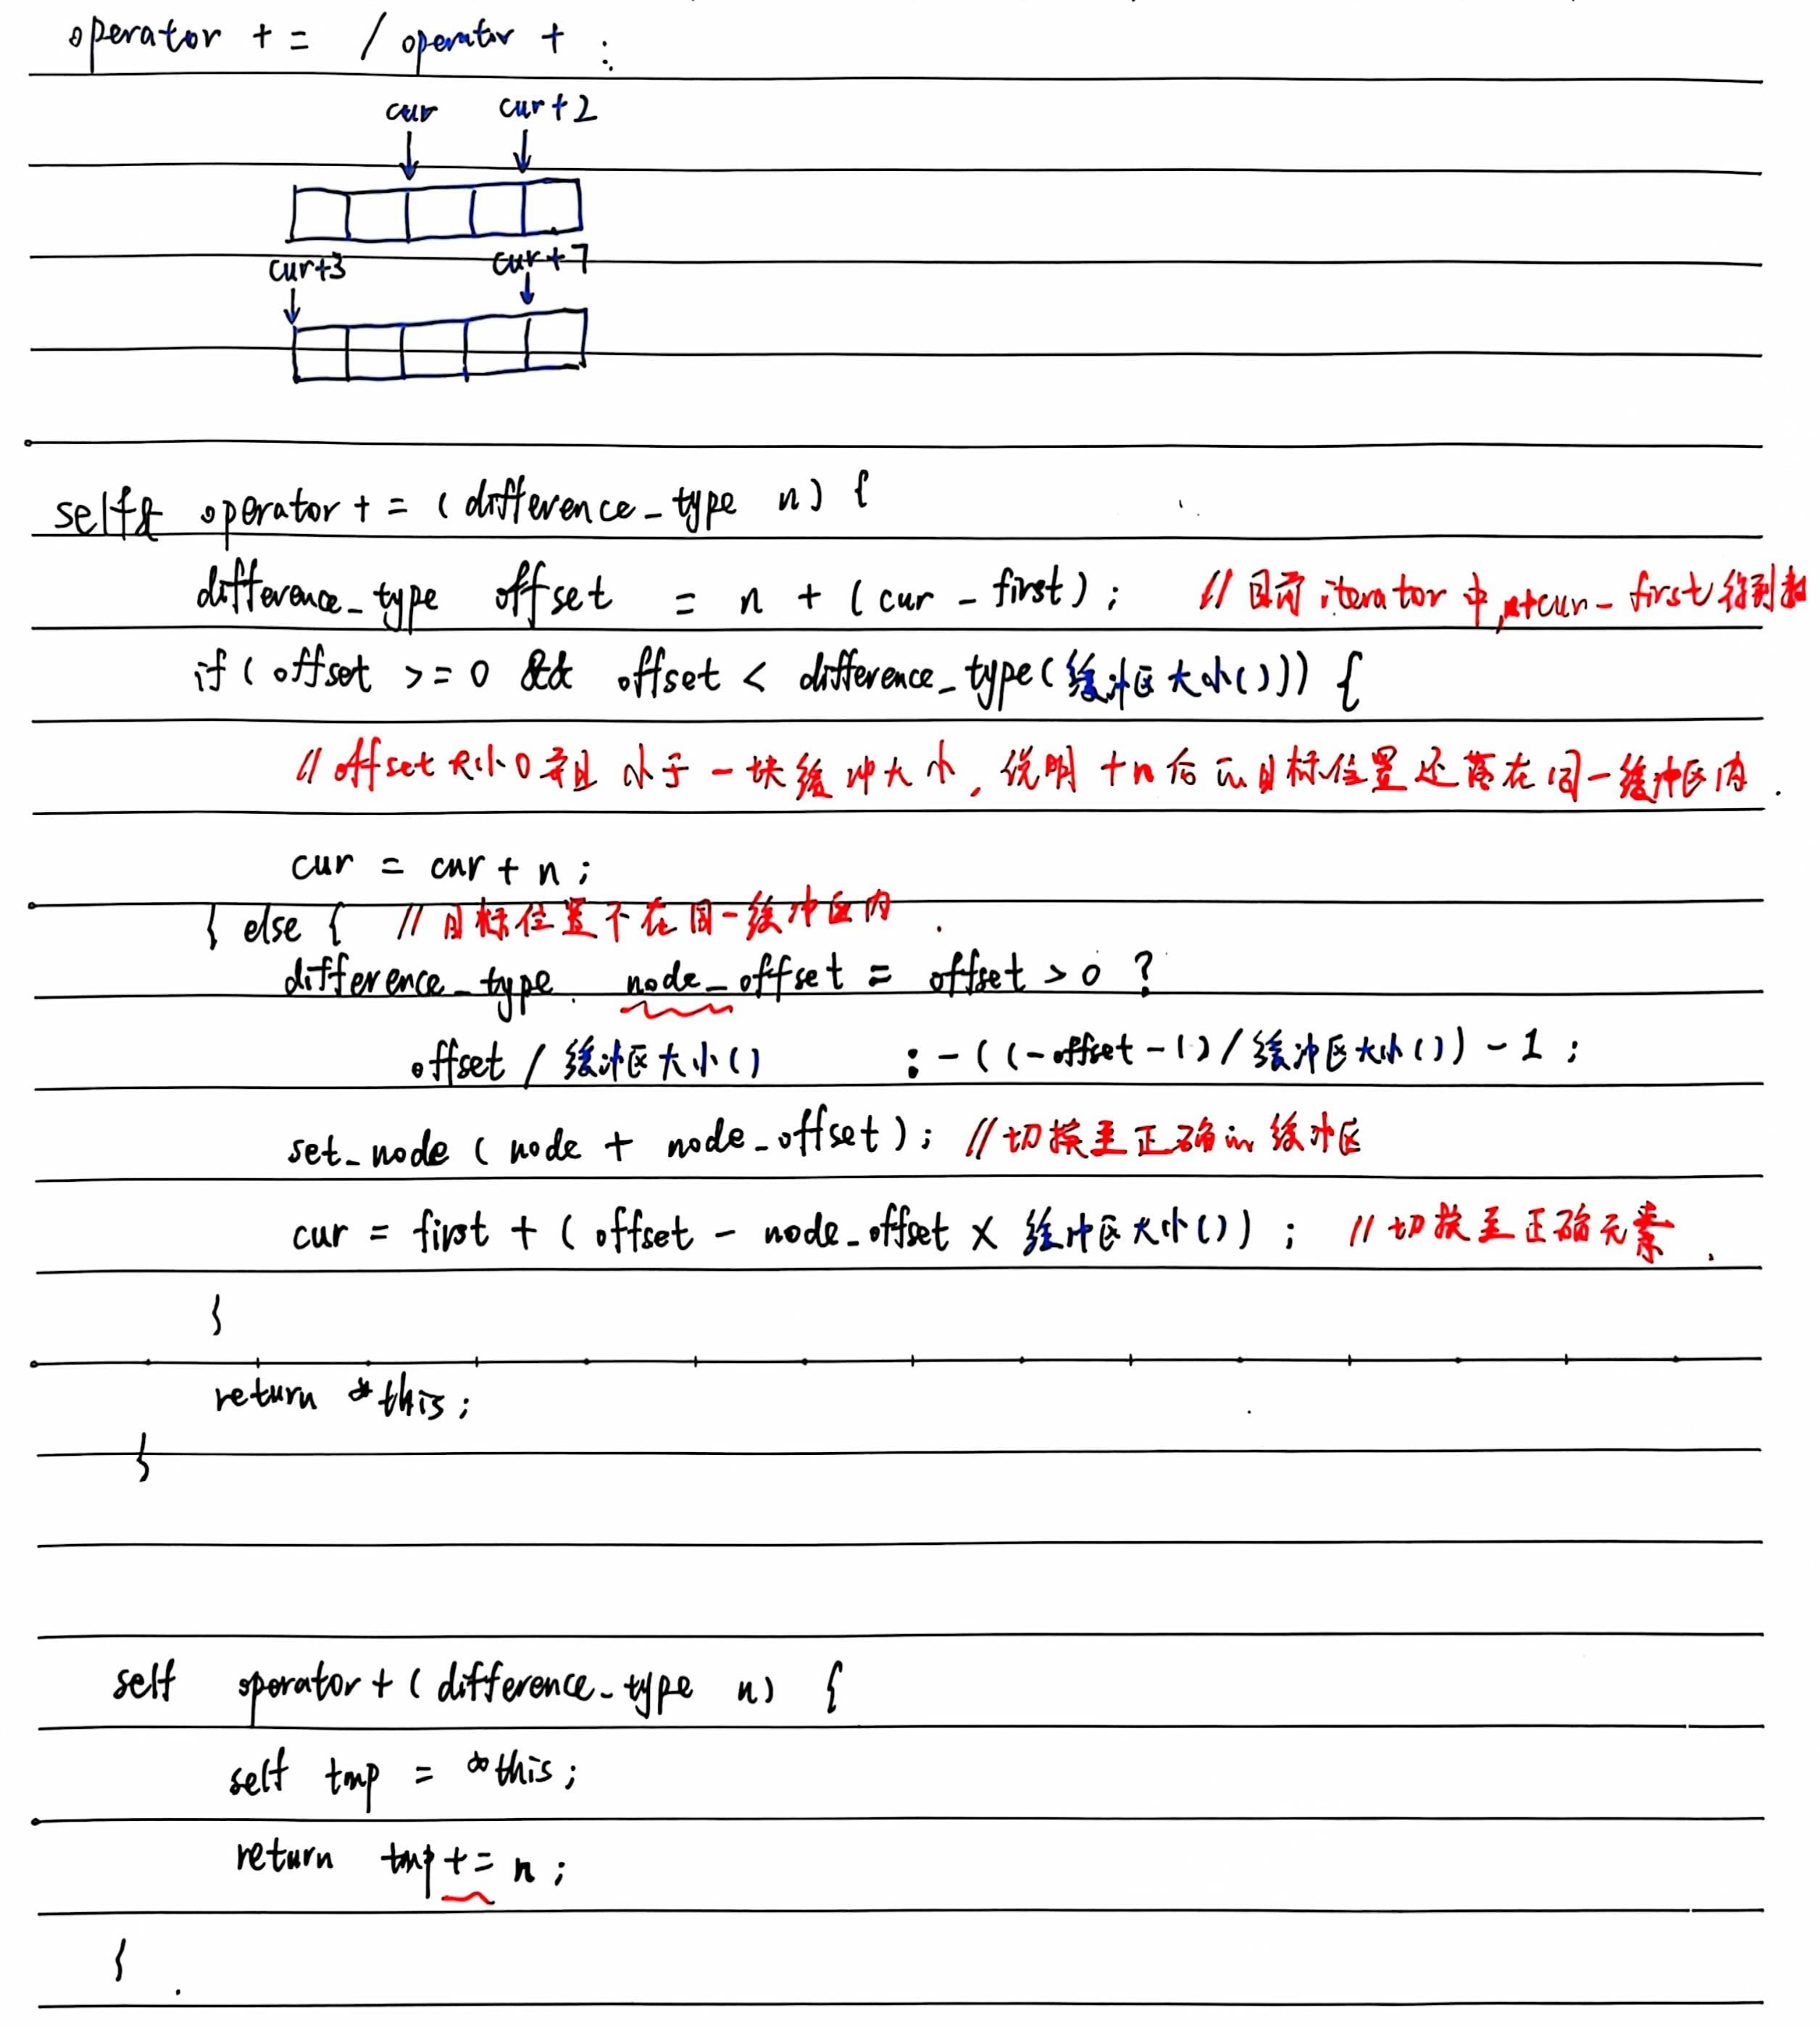 operator += / operator + :
cur cur+2
cur+3 cur+7
self& operator += (difference_type n) {
difference_type offset = n + (cur - first); // 目前iterator中,n+cur-first得到
if (offset >= 0 && offset < difference_type(缓冲区大小())) {
// offset 大小0并且小于一块缓冲大小, 说明+n后的目标位置还落在同一缓冲区内.
cur = cur + n;
} else { // 目标位置不在同一缓冲区内.
difference_type node_offset = offset > 0 ?
offset / 缓冲区大小() : -((-offset-1)/缓冲区大小())-1;
set_node (node + node_offset); // 切换至正确的缓冲区
cur = first + (offset - node_offset × 缓冲区大小()); // 切换至正确元素.
}
return *this;
}
self operator+(difference_type n) {
self tmp = *this;
return tmp += n;
}